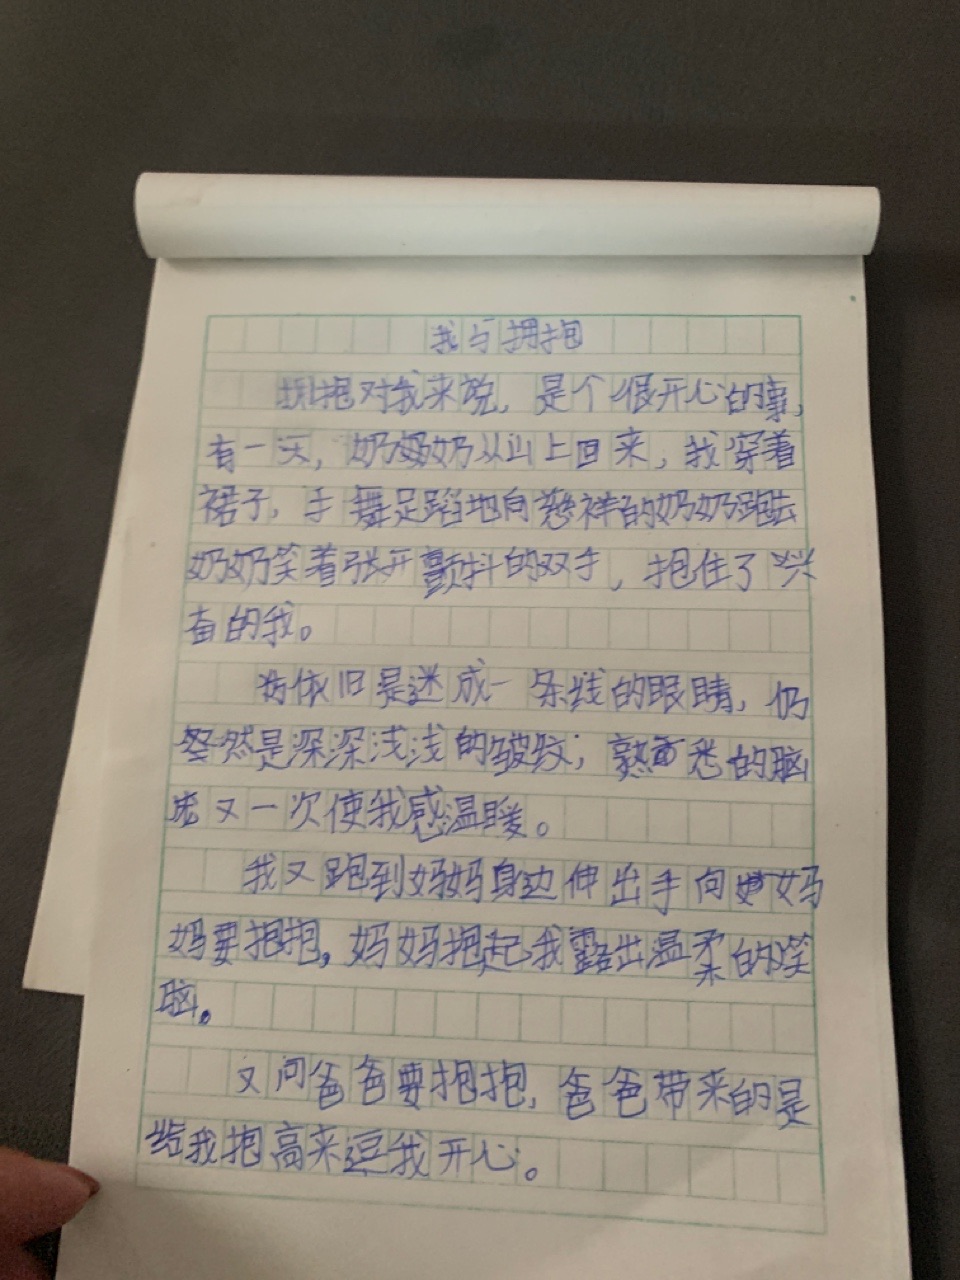 我与拥抱
拥抱对我来说，是个很开心的事，
有一天，奶奶从山上回来，我穿着
裙子，手舞足蹈地向慈祥的奶奶跑去
奶奶笑着张开颤抖的双手，抱住了兴
奋的我。
依旧是迷成一条线的眼睛，仍
然是深深浅浅的皱纹；熟悉的脑
又一次使我感温暖。
我又跑到妈妈身边伸出手向妈
妈要抱抱，妈妈抱起我露出温柔的笑
脑。
又问爸爸要抱抱，爸爸带来的是
给我抱高来逗我开心。